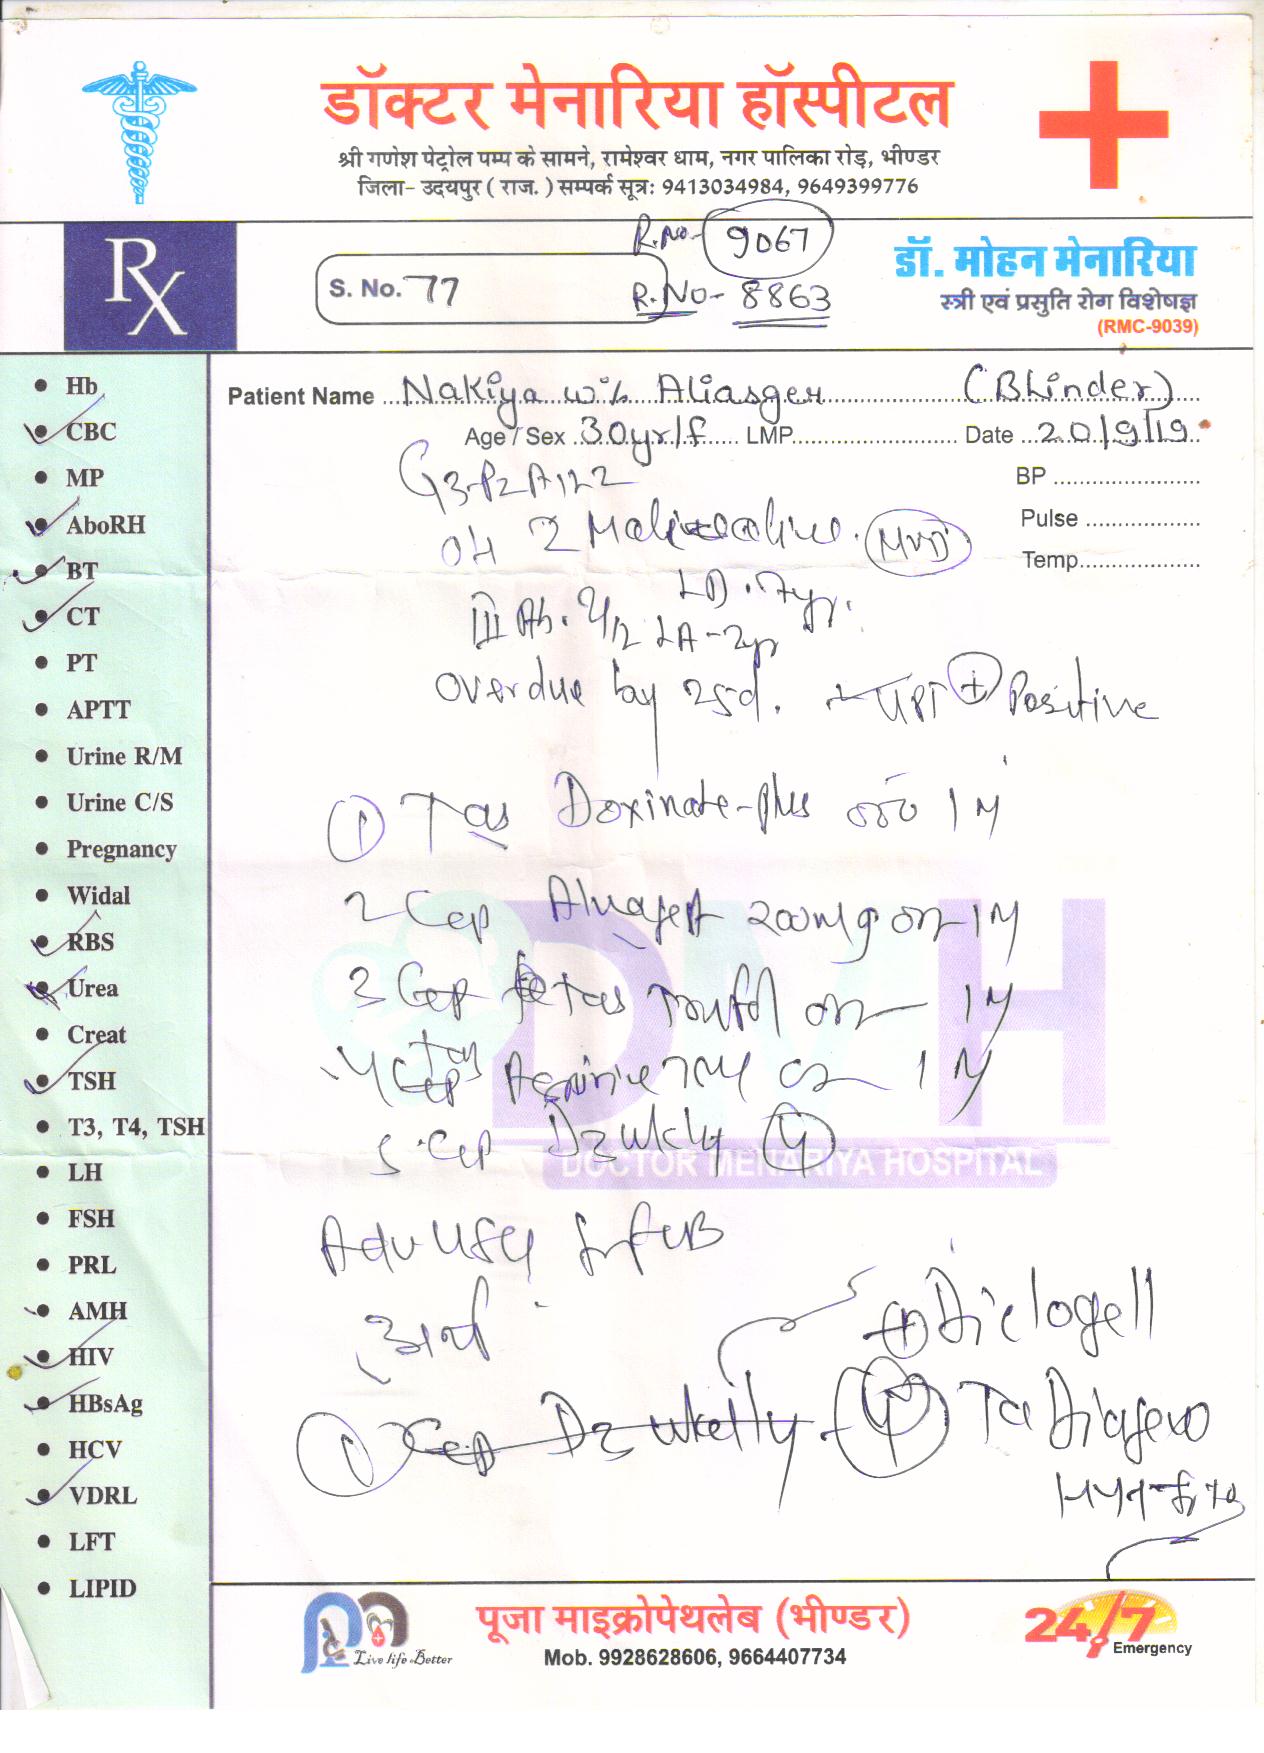 डॉक्टर मेनारिया हॉस्पीटल
श्री गणेश पेट्रोल पम्प के सामने, रामेश्वर धाम, नगर पालिका रोड़, भीण्डर
जिला- उदयपुर ( राज. ) सम्पर्क सूत्र: 9413034984, 9649399776
RX
S. No. 77
R.No- 9067
R.No- 8863
डॉ. मोहन मेनारिया
स्त्री एवं प्रसुति रोग विशेषज्ञ
(RMC-9039)
Hb
CBC
MP
AboRH
BT
CT
PT
APTT
Urine R/M
Urine C/S
Pregnancy
Widal
RBS
Urea
Creat
TSH
T3, T4, TSH
LH
FSH
PRL
AMH
HIV
HBsAg
HCV
VDRL
LFT
LIPID
Patient Name Nakiya w/o Aliasger (Bhinder)
Age / Sex 30yr/f LMP Date 20/9/19
BP
Pulse
Temp
G3P2A1L2
OH 2 Male
LD. 7yr.
III Ab. LA-2yr
overdue by 25d. UPT + Positive
1 Tab Doxinate-plus 1 M
2 Cap 200mg on 1 M
3 Cap Tab on 1 M
4 Cap Tab on 1 M
5 Cap D3 wkly 4
Adv USG
+ Diclogell
1 Cap D3 wkelly 4
DMH
DOCTOR MENARIYA HOSPITAL
Live life Better
पूजा माइक्रोपेथलेब (भीण्डर)
Mob. 9928628606, 9664407734
24/7
Emergency